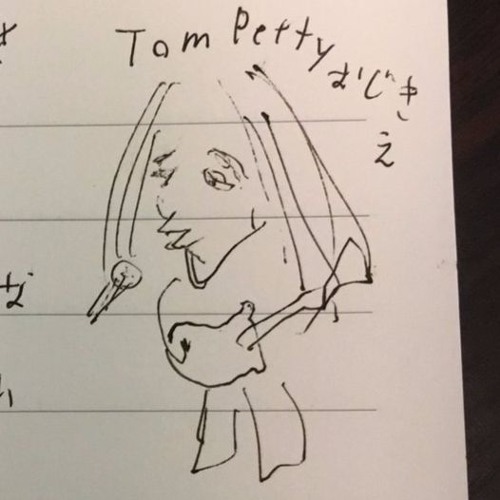 Tom Petty おじき
え